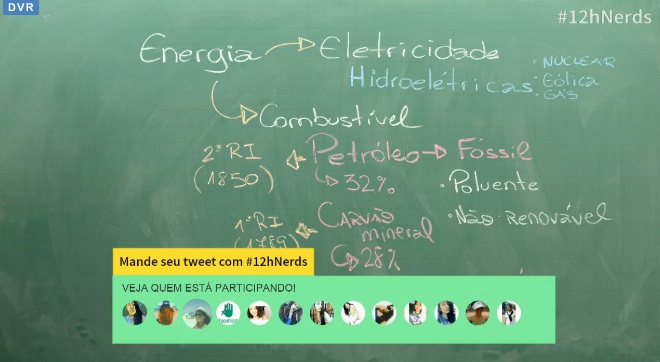 DVR
#12hNerds
Energia → Eletricidade
Hidroelétricas
• NUCLEAR
• Eólica
• GÁS
Combustível
2ª RI
(1850)
Petróleo → Fóssil
32%
• Poluente
• Não renovável
1ª RI
(1789)
CARVÃO
mineral
28%
Mande seu tweet com #12hNerds
VEJA QUEM ESTÁ PARTICIPANDO!